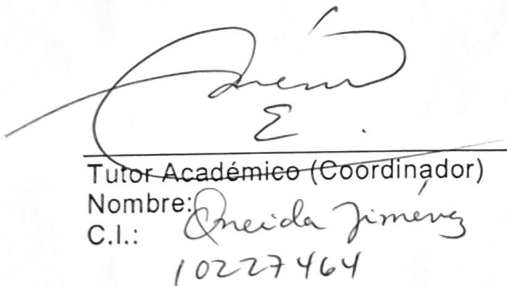 Tutor Académico (Coordinador)
Nombre: Oneida Jiménez
C.I.:
10227464